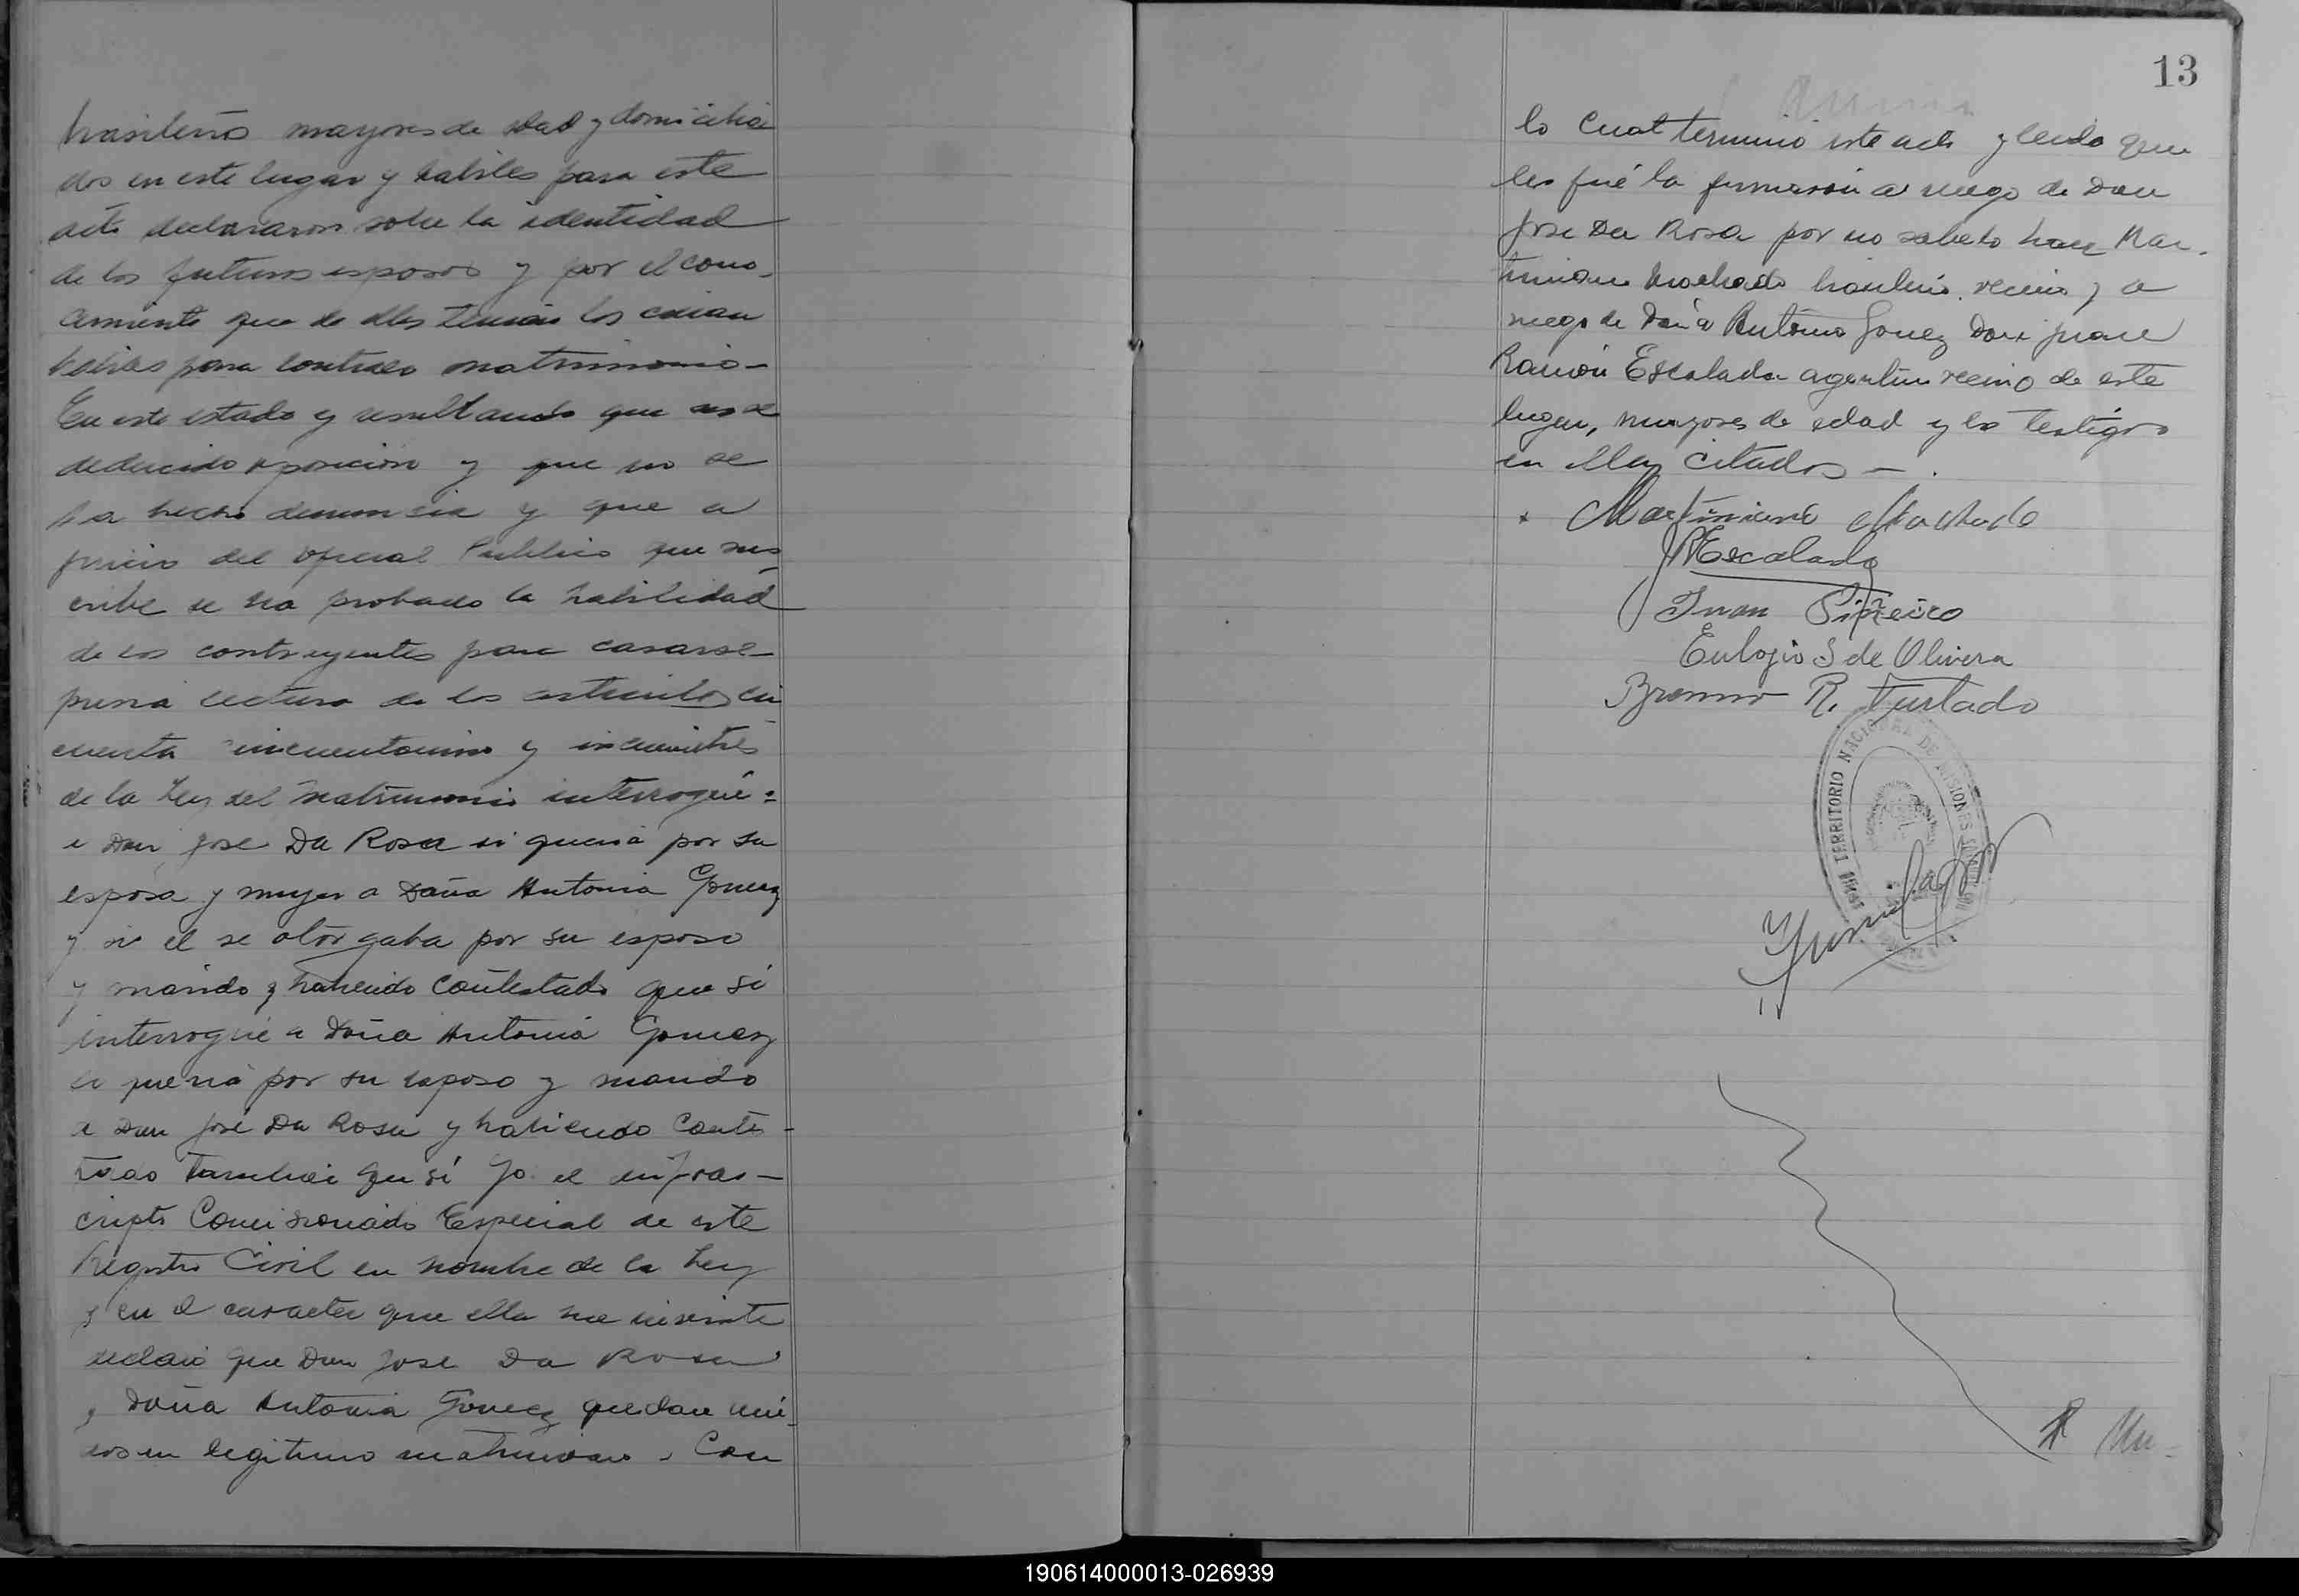 brasileños mayores de edad y domicilia
dos en este lugar y habiles para este
acto declararon sobre la identidad
de los futuros esposos y por el cono-
cimiento que de ellos tenian los creian
habiles para contraer matrimonio-
En este estado y resultando que no se
deducido oposicion y que no se
ha hecho denuncia y que a
juicio del oficial Publico que sus
cribe se ha probado la habilidad
de los contrayentes para casarse-
previa lectura de los articulos cin
cuenta cincuentaiuno y cincuentitres
de la Ley del Matrimonio interrogué=
a Don Jose Da Rosa si queria por su
esposa y mujer a Doña Antonia Gomez
y si el se otorgaba por su esposo
y marido y habiendo contestado que si
interrogué a Doña Antonia Gomez
si queria por su esposo y marido
a Don José Da Rosa y habiendo contes-
tado tambien que sí Yo el infras-
cripto Comisionado Especial de este
Registro Civil en nombre de la Ley
y en el caracter que ella me inviste
declaro que Don Jose Da Rosa
y Doña Antonia Gomez quedan uni-
dos en legitimo matrimonio. Con
13
lo cual terminó este acto y leida que
les fué la firmaron a ruego de Don
Jose Da Rosa por no saberlo hacer Mar-
tiniano Machado brasileño vecino y a
ruego de Doña Antonia Gomez Don Juan
Ramón Escalada argentino vecino de este
lugar, mayores de edad y los testigos
en ella citados -.
Martiniano Machado
JREscalada
Juan Piñeiro
Eulogio S de Olivera
Bremno R. Furtado
TERRITORIO NACIONAL DE MISIONES
190614000013-026939